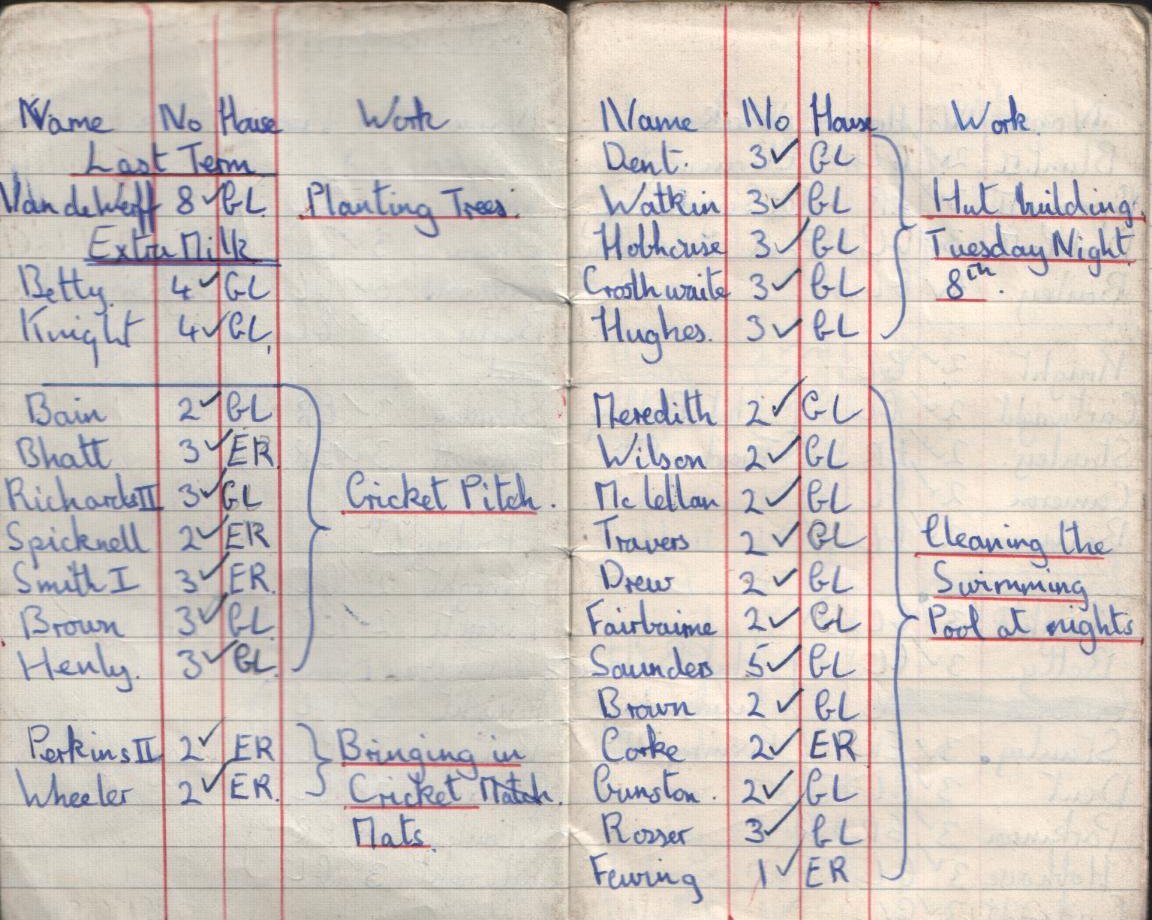 Name No House Work
Last Term
Van de Werff 8 ✓ GL Planting Trees.
Extra Milk
Betty. 4 ✓ GL
Knight 4 ✓ GL.
Bain 2 ✓ GL
Bhatt 3 ✓ ER
Richards II 3 ✓ GL Cricket Pitch.
Spicknell 2 ✓ ER
Smith I 3 ✓ ER
Brown 3 ✓ GL
Henly. 3 ✓ GL
Perkins II 2 ✓ ER Bringing in
Wheeler 2 ✓ ER Cricket Match.
Mats.
Name No House Work
Dent. 3 ✓ GL
Watkin 3 ✓ GL Hut building
Hobhouse 3 ✓ GL Tuesday Night
Crosthwaite 3 ✓ GL 8th.
Hughes. 3 ✓ GL
Meredith 2 ✓ GL
Wilson 2 ✓ GL
McLellan 2 ✓ GL
Travers 2 ✓ GL Cleaning the
Drew 2 ✓ GL Swimming
Fairbairne 2 ✓ GL Pool at nights
Saunders 5 ✓ GL
Brown 2 ✓ GL
Corke 2 ✓ ER
Gunston. 2 ✓ GL
Rosser 3 ✓ GL
Fewing 1 ✓ ER